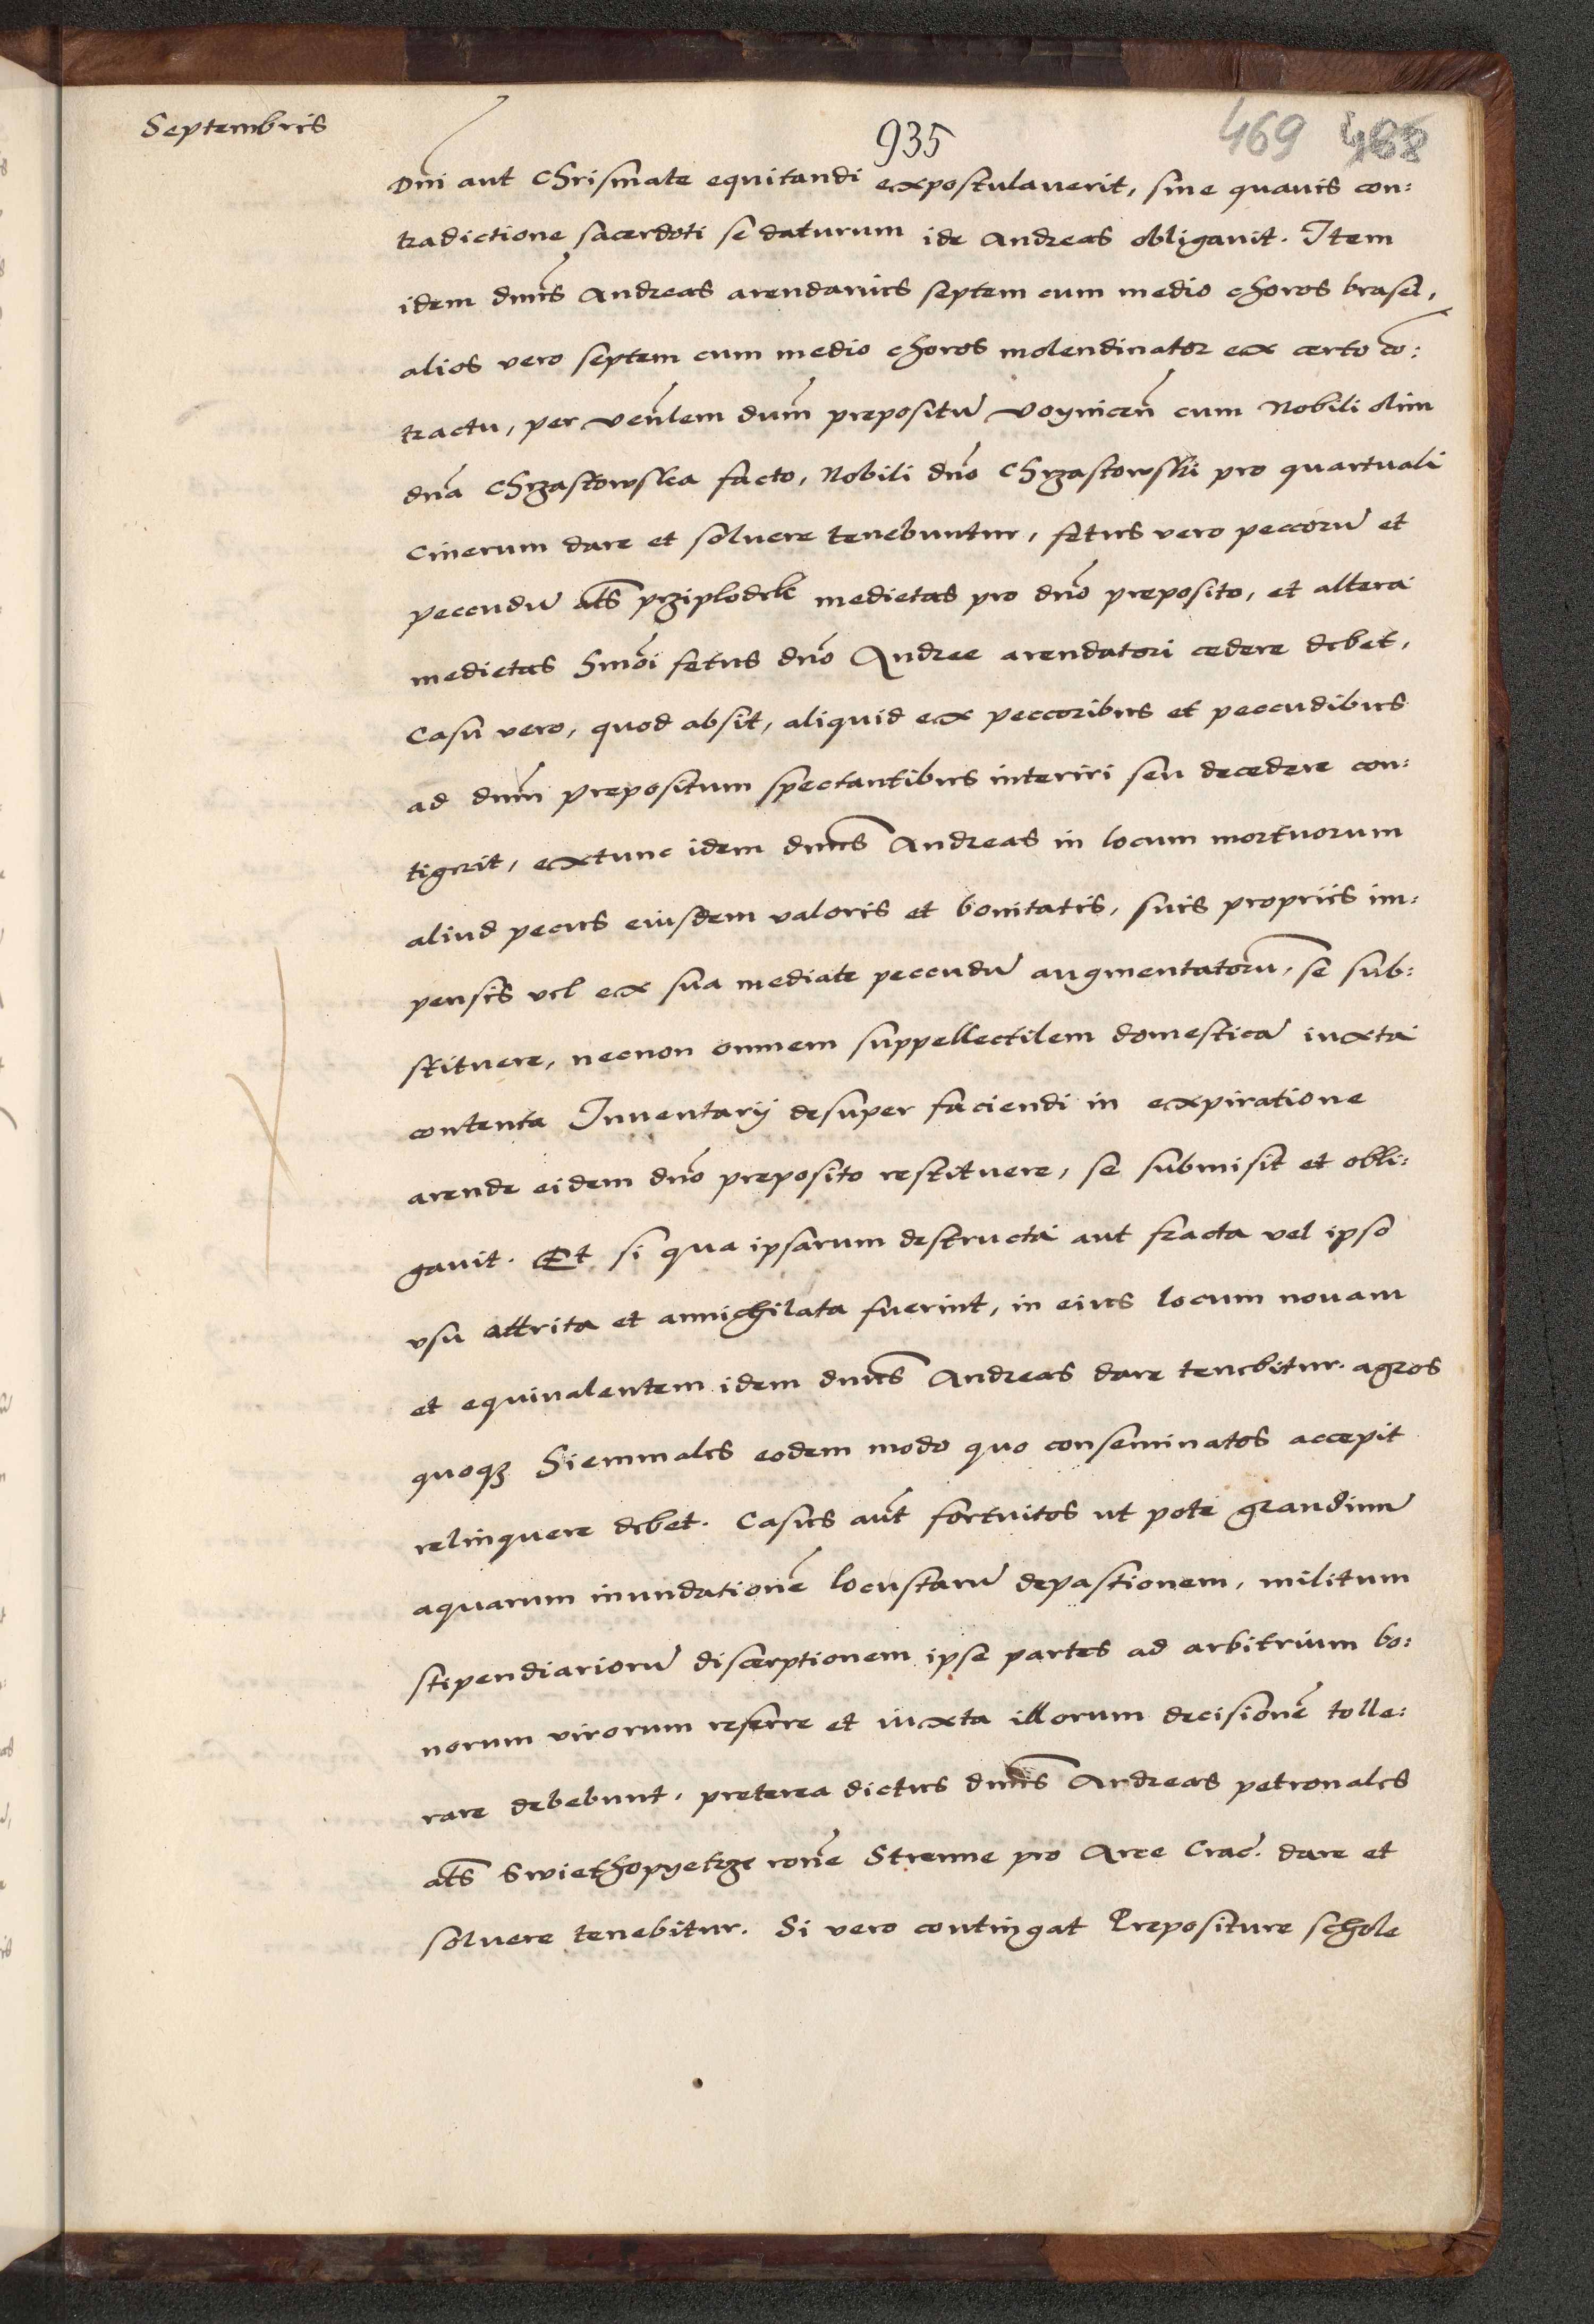 Septembris
935
469 468
Dni aut Chrismate equitandi expostulauerit, sine quauis con:
tradictione sacerdoti se daturum ide Andreas obligauit. Item
idem dnus Andreas arendarius septem cum medio choros brasei,
alios vero septem cum medio choros molendinator ex certo co:
tractu, per venlem dum prepositu Voynicen cum Nobili olim
dna Chrzastowska facto, Nobili dno Chrzastowski pro quartuali
Cinerum dare et soluere tenebuntur, fetus vero peccoru et
peccudu als prziplodek medietas pro dno preposito, et altera
medietas hmoi fetus dno Andree arendatori cedere debet,
Casu vero, quod absit, aliquid ex peccoribus et peccudibus
ad dum prepositum spectantibus interiri seu decedere con:
tigerit, extunc idem dnus Andreas in locum mortuorum
aliud pecus eiusdem valoris et bonitatis, suis propriis im:
pensis vel ex sua mediate peccudu augmentatoru, se sub:
stituere, necnon omnem suppellectilem domestica iuxta
contenta Inuentarij desuper faciendi in expiratione
arende eidem dno preposito restituere, se submisit et obli:
gauit. Et si qua ipsarum destructa aut fracta vel ipso
vsu attrita et annichilata fuerint, in eius locum nouam
et equiualentem idem dnus Andreas dare tenebitur. agros
quoqz hiemmales eodem modo quo conseminatos accepit
relinquere debet. Casus aut fortuitos ut pote grandinu
aquarum inundatione locustaru depastionem, militum
stipendiarioru discerptionem ipse partes ad arbitrium bo:
norum virorum referre et iuxta illorum decisione tolle:
rare debebunt, preterea dictus dnus Andreas petronales
als Swiethopyetrze rone Strenne pro Arce Crac. dare et
soluere tenebitur. Si vero contingat Prepositure schole